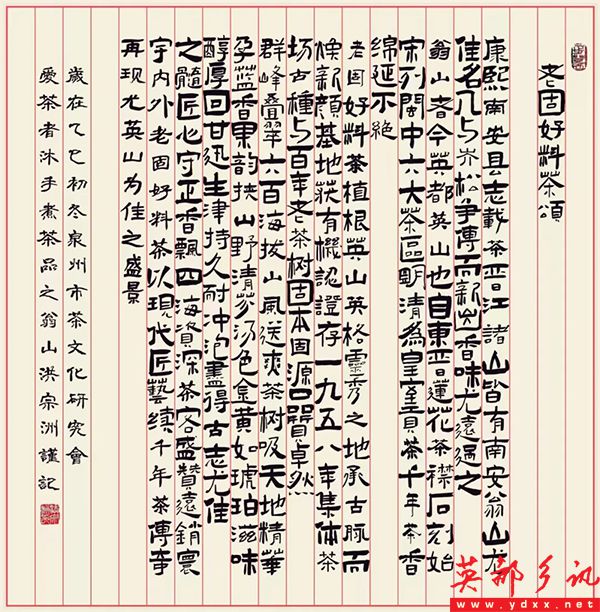 老固好料茶頌
康熙南安县志載茶晋江諸山皆有南安翁山尤
佳名几与岕松争傳而新出香味尤遠過之
翁山者今英都英山也自東晋蓮花茶襟石刻始
宋列閩中六大茶區明清為皇室貢茶千年茶香
綿延不絶
老固好料茶植根英山英格靈秀之地承古脉而
焕新顔基地获有機認證存一九五八年集体茶
场古種与百年老茶树固本固源品質卓然
群峰叠翠六百海拔山風送爽茶树吸天地精華
孕蓝香果韵挾山野清芬汤色金黄如琥珀滋味
醇厚回甘迅生津持久耐冲泡盡得古志尤佳
之髓匠心守正香飄四海資深茶客盛赞遠銷寰
宇内外老固好料茶以現代匠藝续千年茶傳奇
再现尤英山為佳之盛景
歲在乙巳初冬泉州市茶文化研究會
愛茶者沐手煮茶品之翁山洪宗洲謹記
英都乡讯
www.ydxx.net